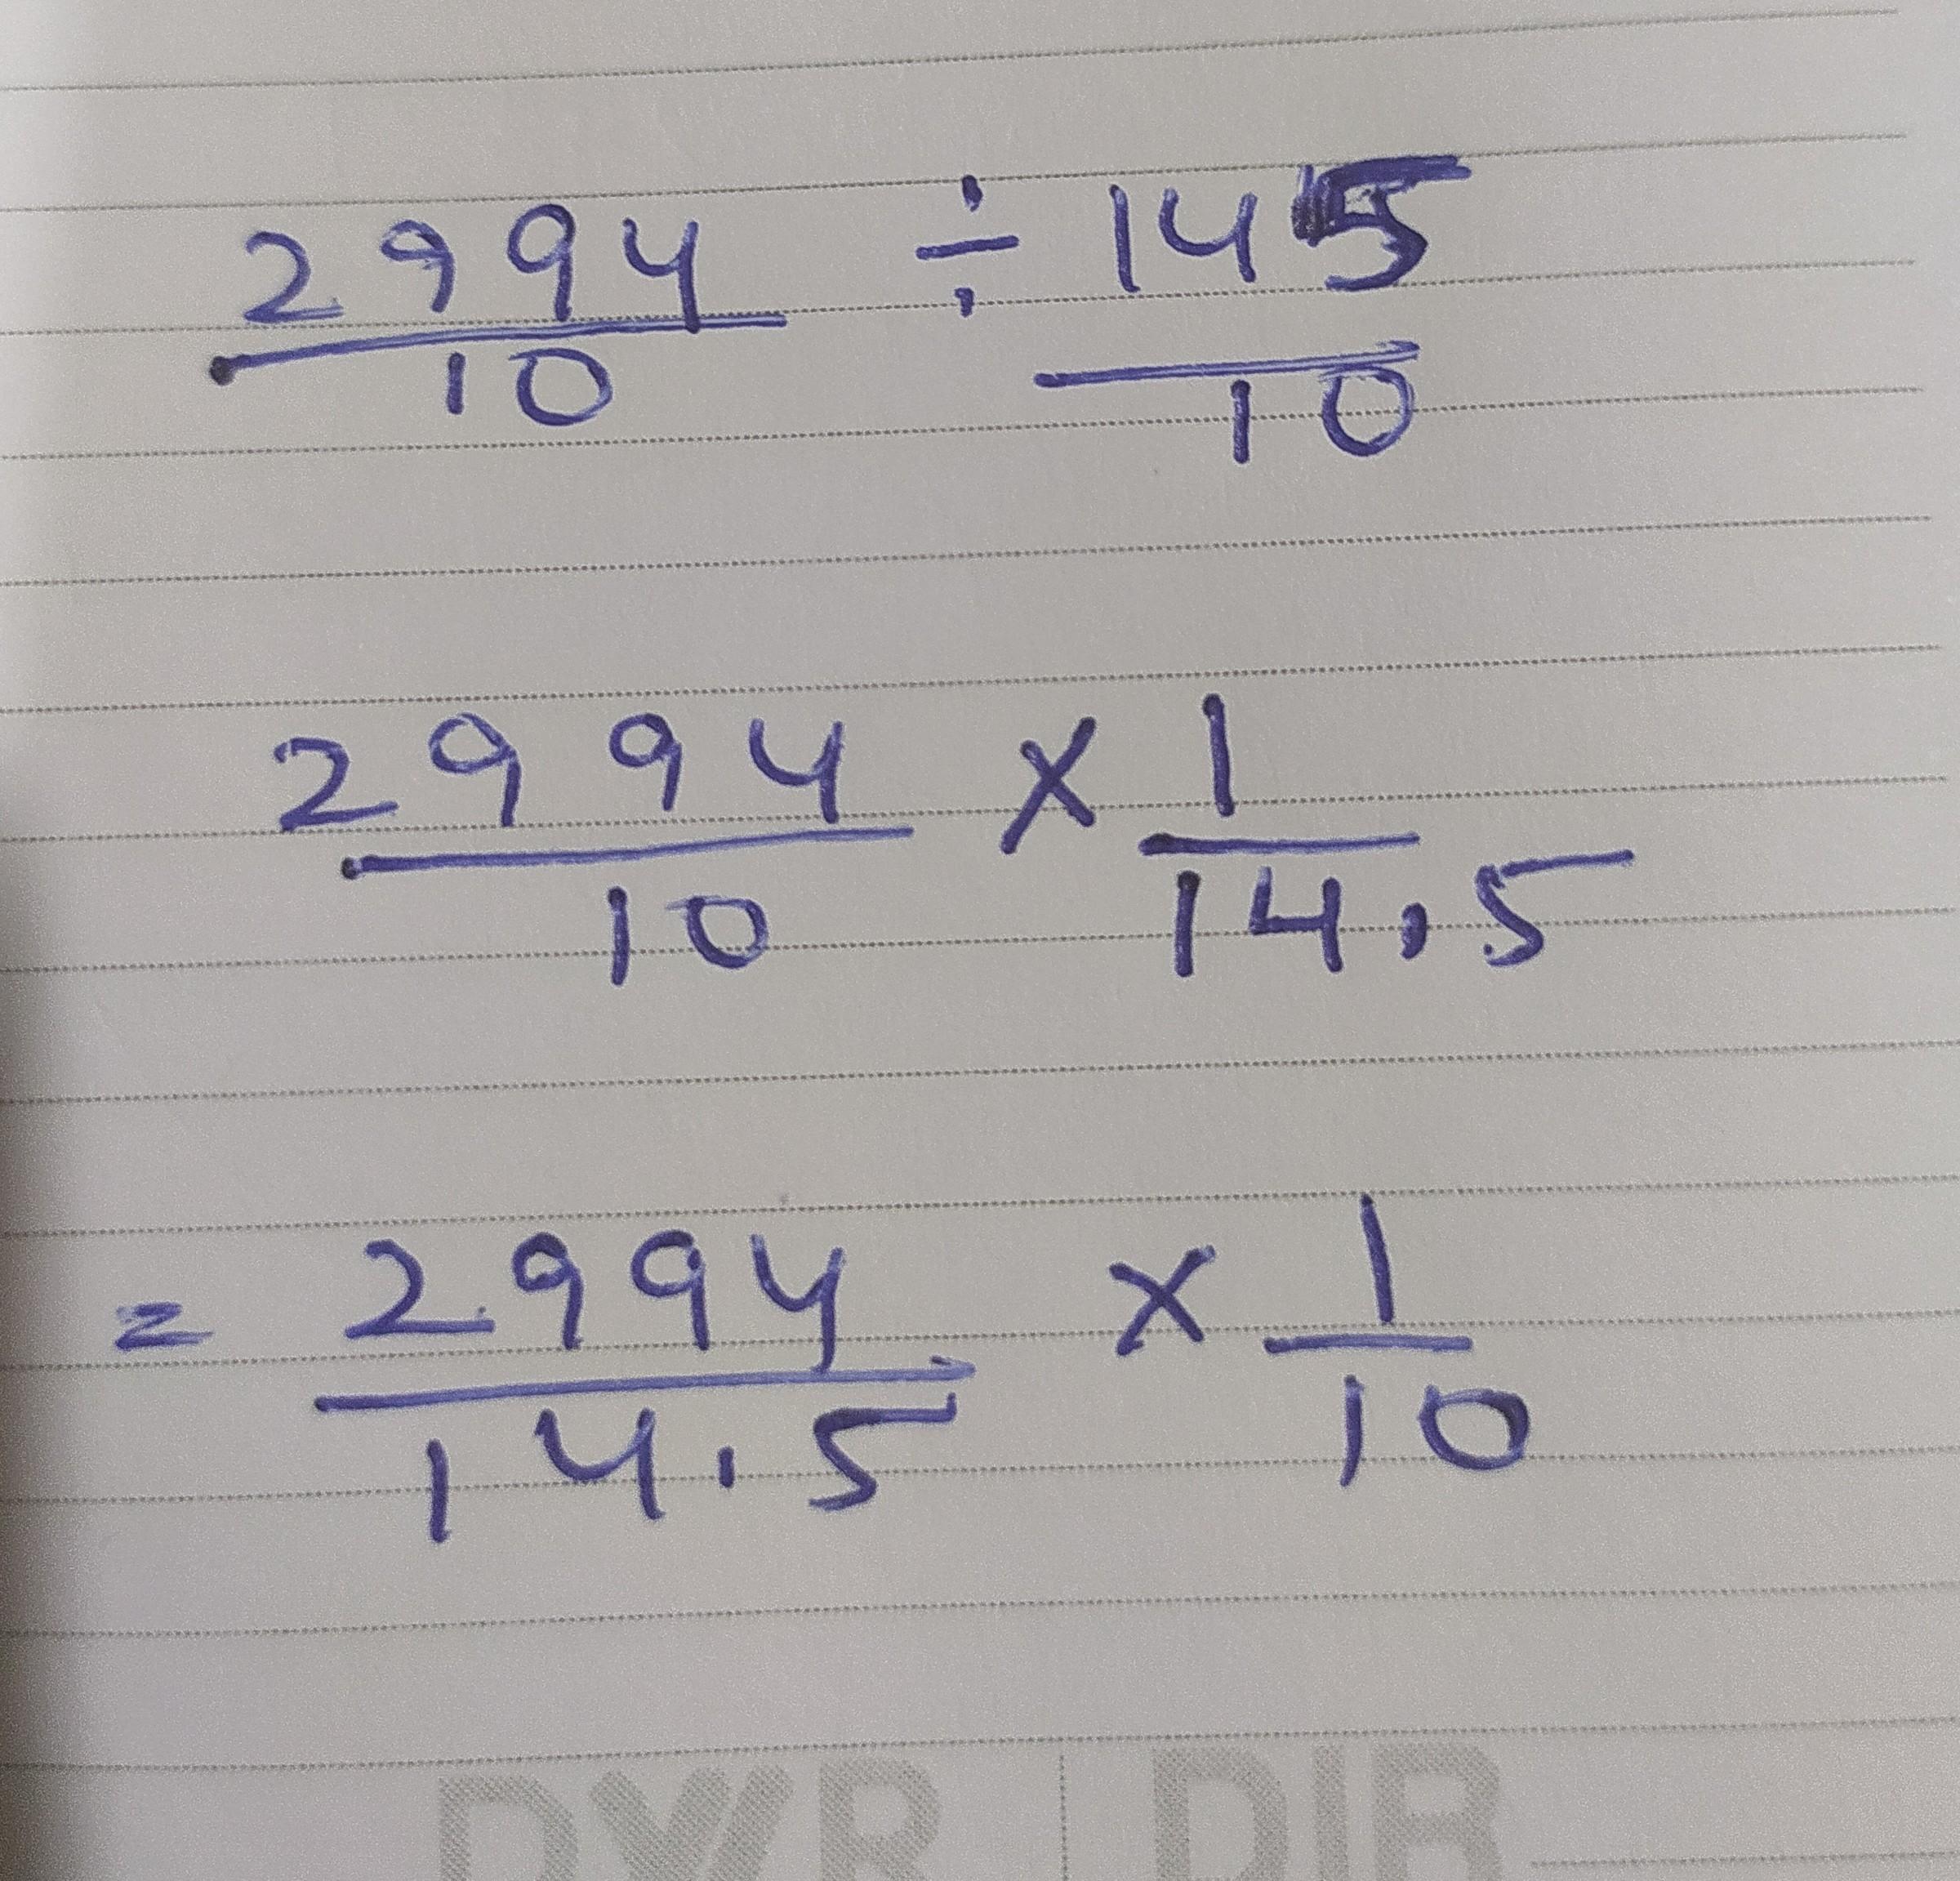 2994/10 ÷ 145/10
2994/10 × 1/14.5
= 2994/14.5 × 1/10